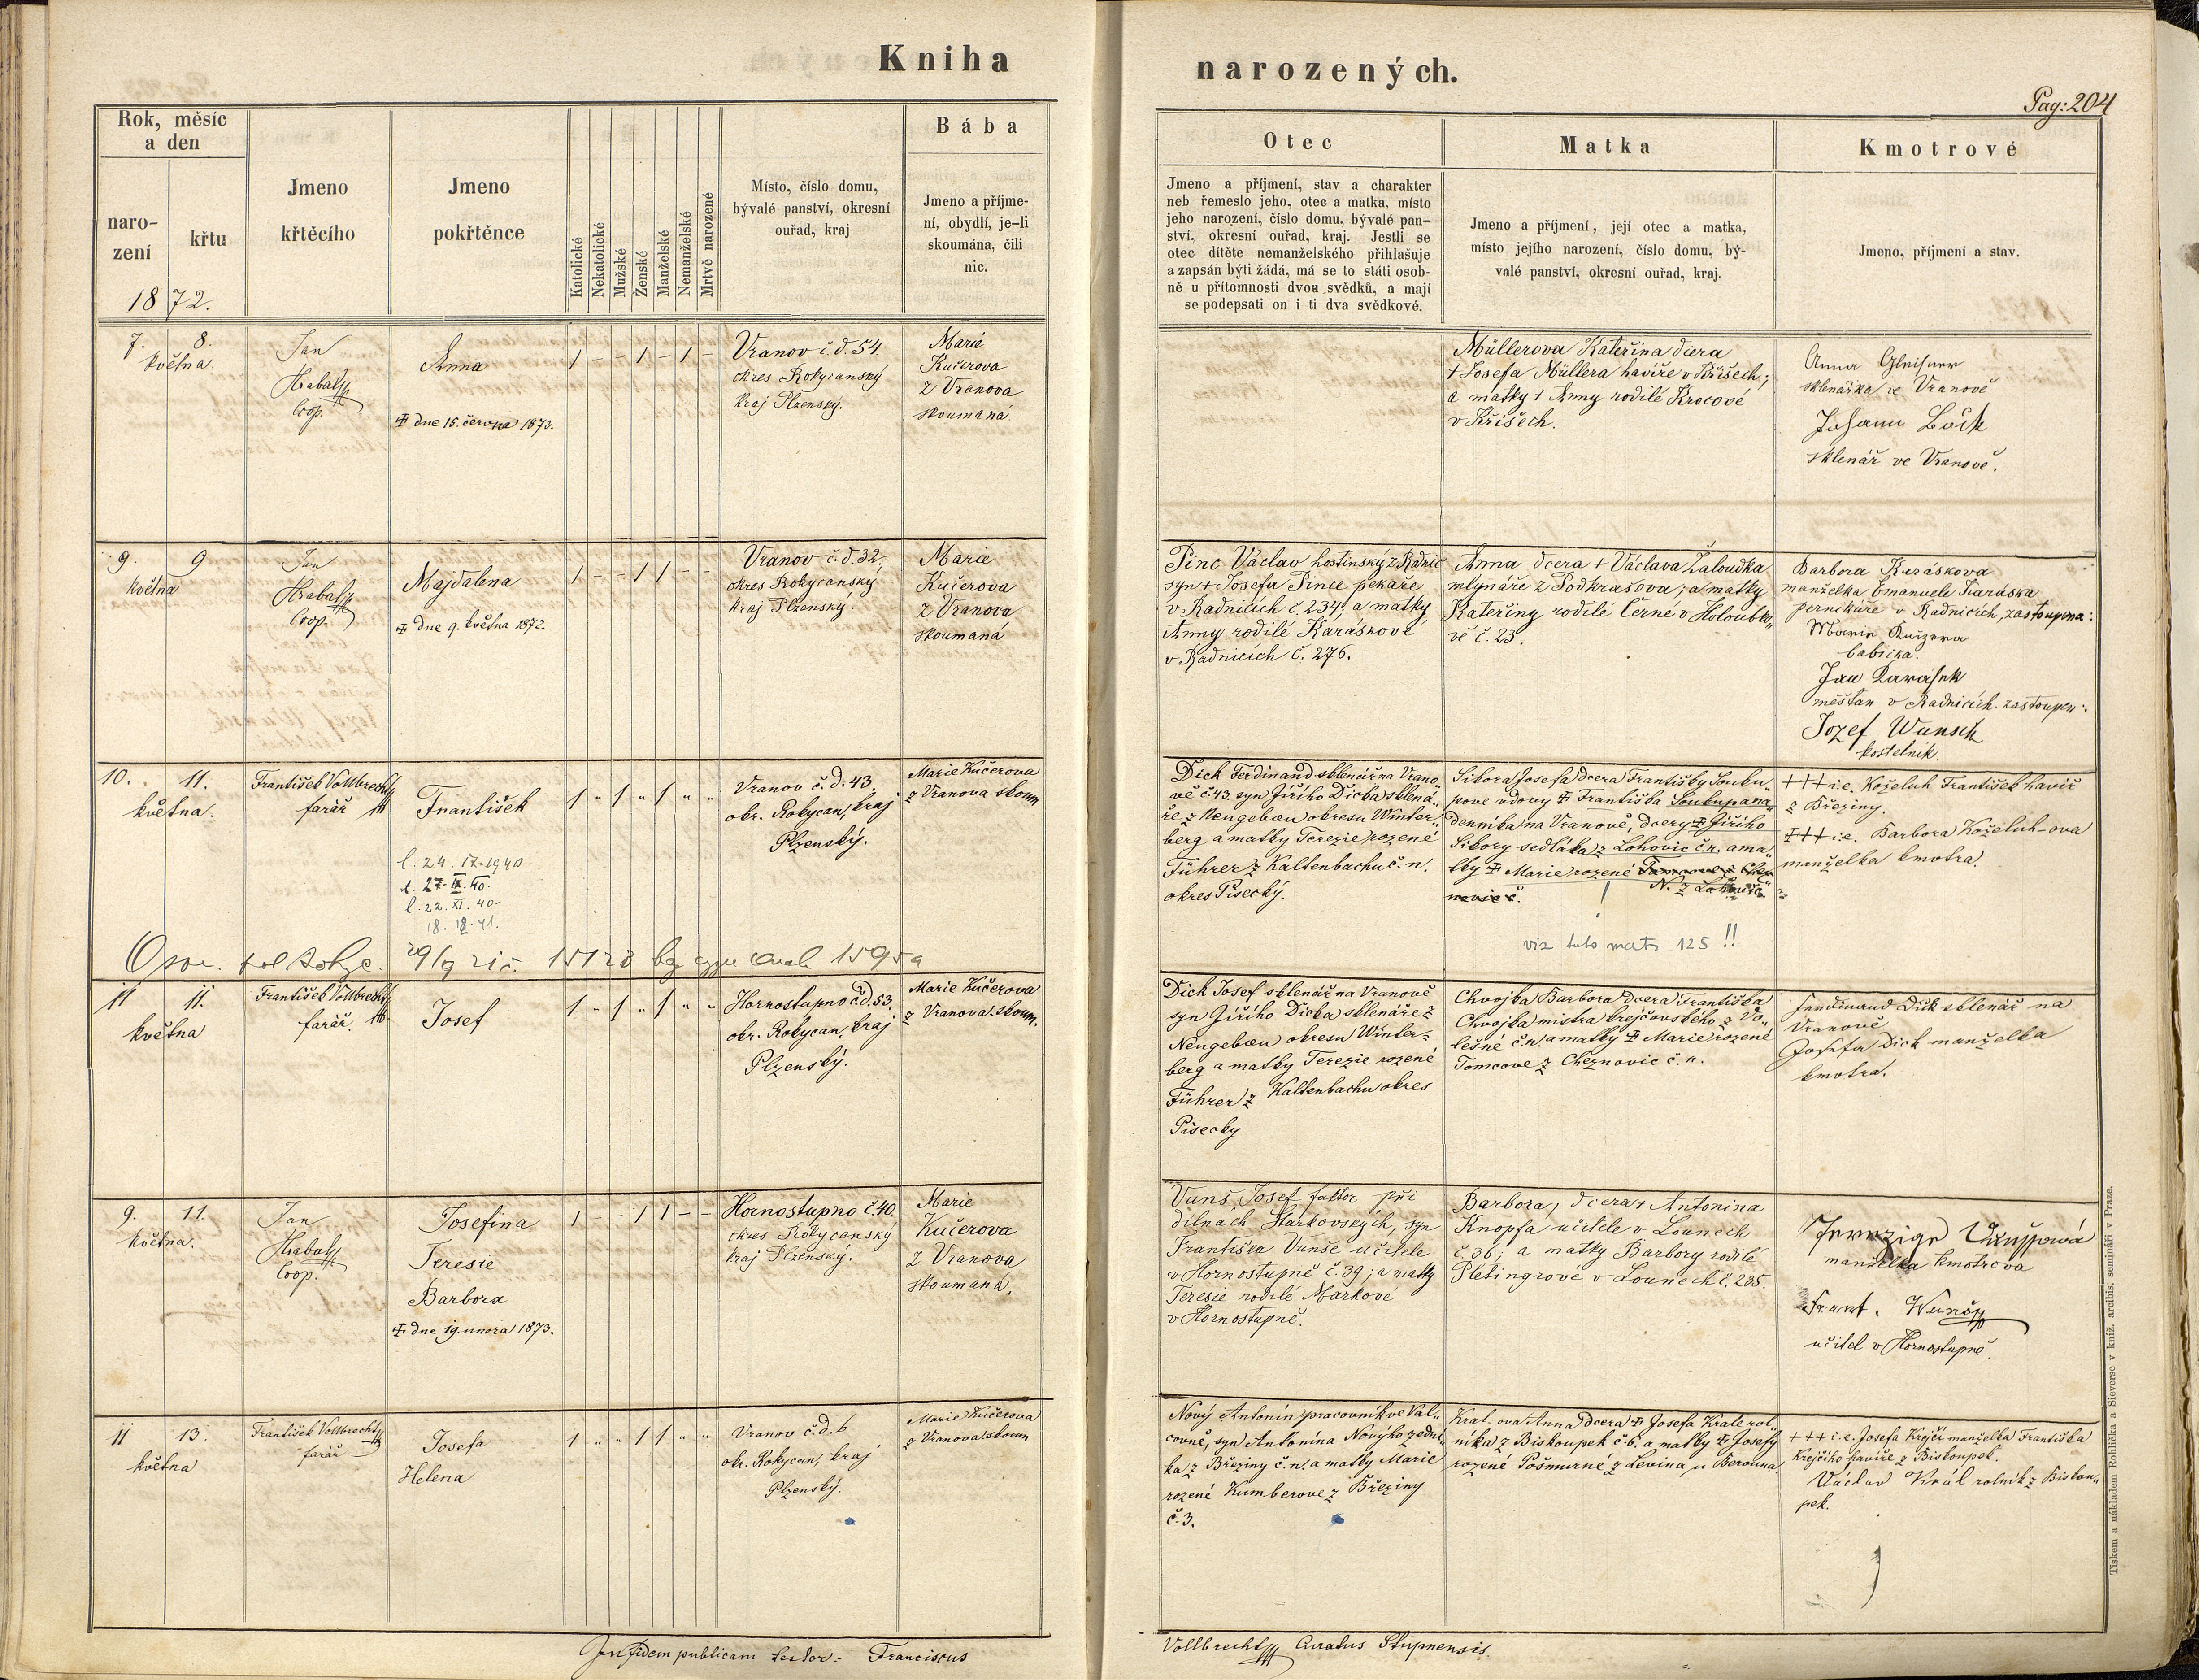 Kniha
narozených.
Pag: 204
Rok, měsíc
a den
naro-
zení
křtu
1872.
Jmeno
křtěcího
Jmeno
pokřtěnce
Katolické
Nekatolické
Mužské
Ženské
Manželské
Nemanželské
Mrtvě narozené
Místo, číslo domu,
bývalé panství, okresní
ouřad, kraj
Bába
Jmeno a příjme-
ní, obydlí, je-li
skoumána, čili
nic.
Otec
Jmeno a příjmení, stav a charakter
neb řemeslo jeho, otec a matka, místo
jeho narození, číslo domu, bývalé pan-
ství, okresní ouřad, kraj. Jestli se
otec dítěte nemanželského přihlašuje
a zapsán býti žádá, má se to státi osob-
ně u přítomnosti dvou svědků, a mají
se podepsati on i ti dva svědkové.
Matka
Jmeno a příjmení, její otec a matka,
místo jejího narození, číslo domu, bý-
valé panství, okresní ouřad, kraj.
Kmotrové
Jmeno, příjmení a stav.
7. 8.
května
Jan
Hrabal
Coop.
Anna
dne 15. června 1873.
1 - - 1 - 1 -
Vranov č.d. 54.
okres Rokycanský
kraj Plzenský.
Marie
Kučerova
z Vranova
skoumaná
Müllerova Kateřina dcera
+ Josefa Müllera havíře v Křišech;
a matky + Anny rodilé Krocové
v Křišech.
Anna
sklenářka ve Vranově
Johann
sklenář ve Vranově.
9. 9
května
Jan
Hrabal
Coop.
Majdalena
dne 9. května 1872.
1 - - 1 1 - -
Vranov č.d. 32,
okres Rokycanský
kraj Plzenský.
Marie
Kučerova
z Vranova
skoumaná
Pinc Václav hostinský z Radnic
syn + Josefa Pince pekaře
v Radnicích č. 234. a matky
Anny rodilé Karáskové
v Radnicích č. 276.
Anna dcera + Václava Žaloudka
mlynáře z Podkrašova, a matky
Kateřiny rodilé Černé v Holoubko„
vě č. 23.
Barbora Karáskova
manželka Emanuele Karáska
perníkáře v Radnicích, zastoupena:
Marie
babička.
Jan Karásek
měšťan v Radnicích. zastoupen:
Jozef Wunsch
kostelník.
10. 11.
května.
František Vollbrecht
farář
František
l. 24. IX. 1940
l. 27. IX. 40.
l. 22. XI. 40-
18. 12. 41.
1 „ 1 „ 1 „ „
Vranov č.d. 43,
okr. Rokycan, kraj
Plzenský.
Marie Kučerova
z Vranova skoum
Dick Ferdinand sklenář na Vrano„
vě č. 43. syn Jiřího Dicka sklená„
ře z Neugebäu okresu Winter„
berg a matky Terezie rozené
Führer z Kaltenbachu č. n.
okres Písecký.
Sibora Josefa dcera Františky Souku„
pove vdovy František Soukupa na„
denníka na Vranově, dcery Jiřího
Sibory sedláka z Lohovic č. n, a ma„
tky Marie rozené
N. z
viz tuto matr 125 !!
+++ i.e. Koželuh František havíř
z Březiny.
+++ i.e. Barbora Koželuh-ova
manželka kmotra.
11 11.
května
František Vollbrecht
farář.
Josef
1 „ 1 „ 1 „ „
Hornostupno č.d. 53.
okr. Rokycan, kraj
Plzenský.
Marie Kučerova
z Vranova skoum.
Dick Josef sklenář na Vranově
syn Jiřího Dicka sklenáře z
Neugebäu okresu Winter-
berg a matky Terezie rozené
Führer z Kaltenbachu okres
Písecky
Chvojka Barbora dcera Františka
Chvojka mistra krejčovského z Vo„
lešné č. n. a matky Marie rozené
Tomcove z Cheznovic č. n.
Ferdinand Dick sklenář na
Vranově
Josefa Dick manželka
kmotra.
9. 11.
května.
Jan
Hrabal
Coop.
Josefina
Teresie
Barbora
dne 19. unora 1873.
1 - - 1 1 - -
Hornostupno č. 40.
okres Rokycanský
kraj Plzenský.
Marie
Kučerova
z Vranova
skoumaná,
Vunš, Josef faktor při
dílnach Starkovských, syn
Františka Vunše učitele
v Hornostupně č. 39; a matky
Teresie rodilé Markové
v Hornostupně.
Barbora, dcera + Antonina
Knopfa učitele v Lounech
č. 36; a matky Barbory rodilé
Pletingrové v Lounech č. 285.
manželka kmotrova
Frant. Wunsch
učitel v Hornostupně.
11 13.
května
František Vollbrecht
farář
Josefa
Helena
1 „ „ 1 1 „ „
Vranov č.d. 6
okr. Rokycan, kraj
Plzenský.
Marie Kučerova
z Vranova skoum
Nový Antonín pracovník ve Vál„
covně, syn Antonína Nového zední„
ka z Březiny č. n. a matky Marie
rozené Kumberove z Březiny
č. 3.
Kral-ova Anna dcera Josefa Krale rol„
níka z Biskoupek č. 6. a matky Josefy
rozené Pošmurné z Levina u Berouna
+++ i.e. Josefa Krejčí manželka Františka
Krejčího havíře z Biskoupek.
Václav Král rolník z Biskou„
pek.
In fidem publicam testor: Franciscus
Vollbrecht Curatus Stupnensis
Tiskem a nákladem Rohlíčka a Sieverse v kníž. arcibis. semináři v Praze.